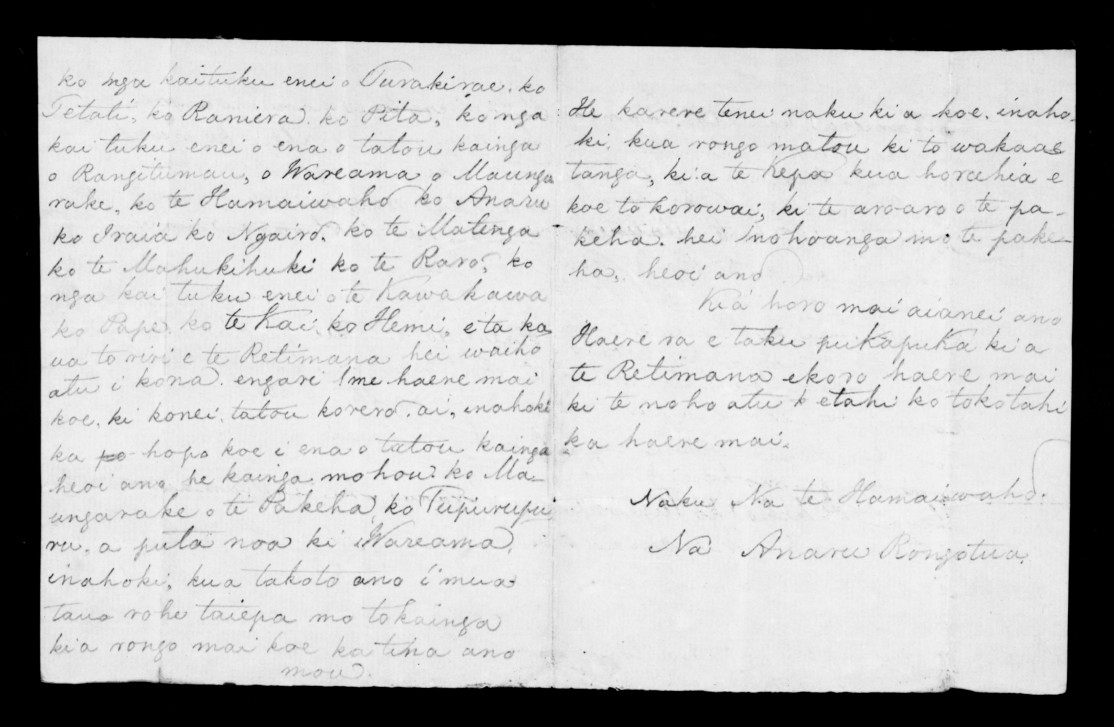 ko nga kaituku enei o Turakirae. ko
Tetati, ko Raniera. ko Pita, ko nga
kai tuku enei o ena o tatou kainga
o Rangitumau, o Wareama o Maunga
rake, ko te Hamaiwaho ko Anaru
ko Iraia ko Ngairo. ko te Matenga
ko te Mahukihuki ko te Raro, ko
nga kai tuku enei o te Kawakawa
ko Pape. ko te Kai, ko Hemi, e ta ka
ua to riri e te Retimana hei waiho
atu i kona. engari me haere mai
koe. ki konei. tatou korero. ai, inahoki
ka hopo koe i ena o tatou kainga
heoi ano he kainga mo hou? ko Ma-
ungarake o te Pakeha, ko Tupurupu
ru. a puta noa ki Wareama,
inahoki, kua takoto ano i mua
taua rohe taiepa mo to kainga
kia rongo mai koe ka tina ano
mou.
He karere tenei naku ki a koe. inaho-
ki. kua rongo matou ki to wakaae
tanga, ki a te Kepa kua horahia e
koe to korowai, ki te aroaro o te pa-
keha. hei nohoanga mo te pake-
ha, heoi ano
Kia horo mai aianei ano
Haere ra e taku pukapuka ki a
te Retimana ekoro haere mai
ki te noho atu etahi ko tokotahi
ka haere mai.
Naku Na te Hamaiwaho.
Na Anaru Rongotua.